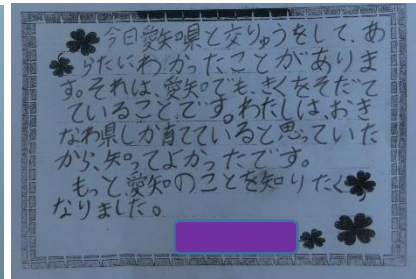 今日愛知県と交りゅうをして、あ
らたにわかったことがありま
す。それは、愛知でも、きくをそだて
ていることです。わたしは、おき
なわ県しか育てていると思っていた
から、知ってよかったです。
もっと愛知のことを知りたく
なりました。